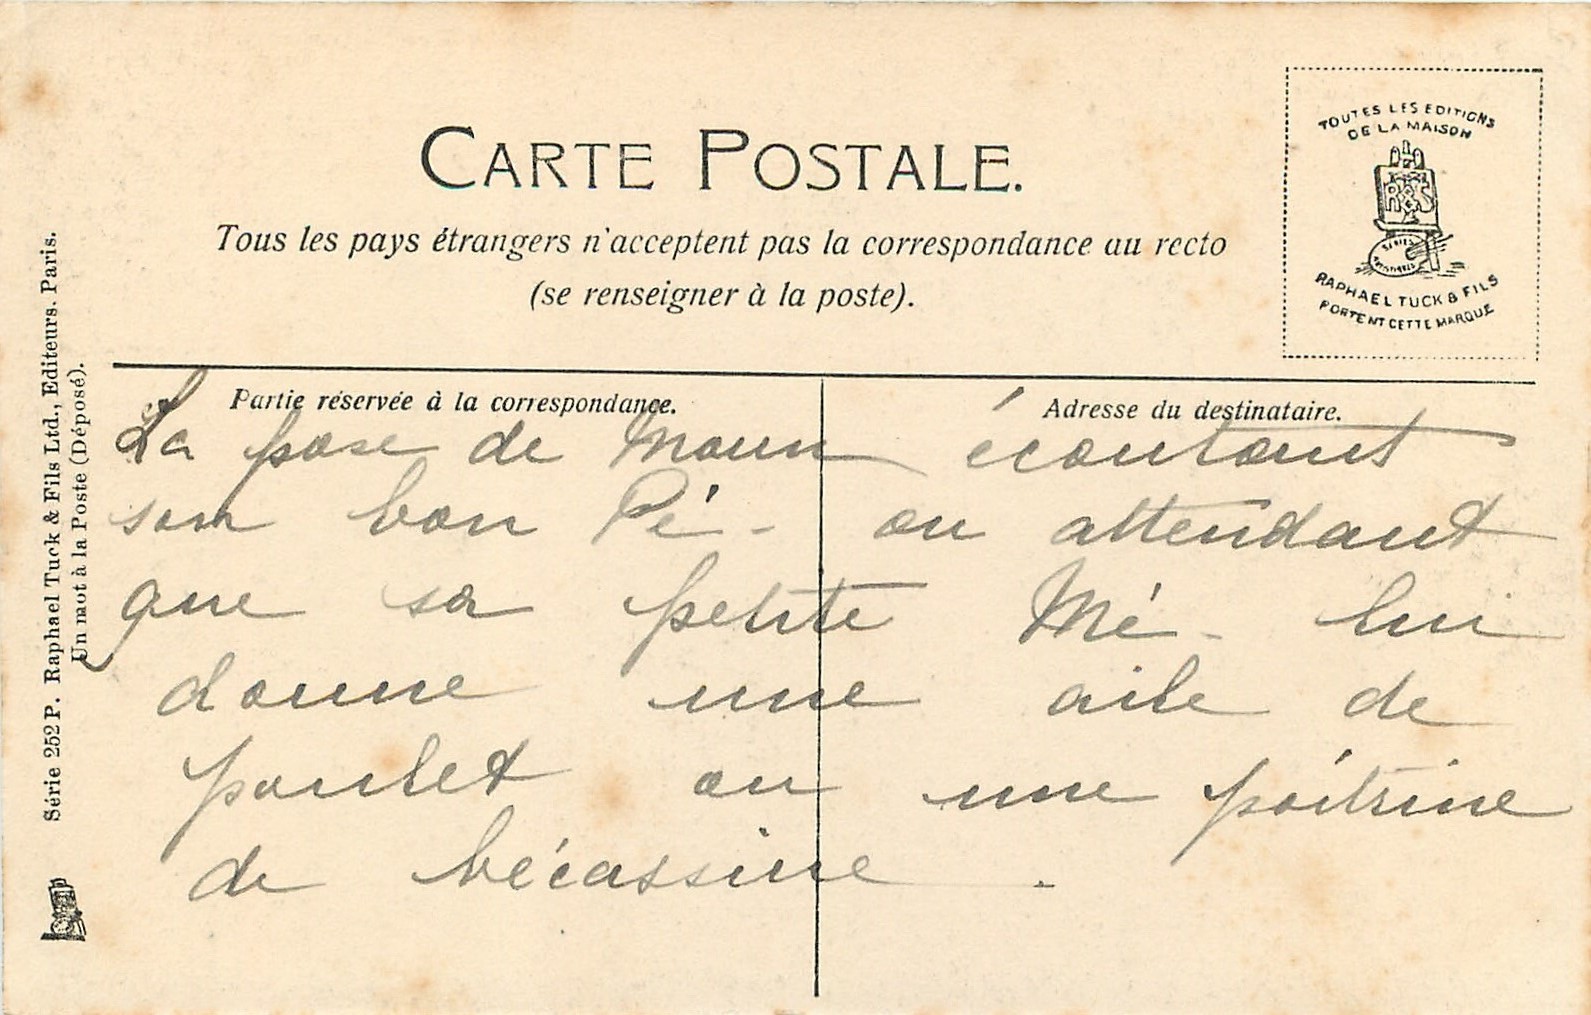 CARTE POSTALE.
Tous les pays étrangers n'acceptent pas la correspondance au recto
(se renseigner à la poste).
TOUTES LES EDITIONS
DE LA MAISON
R&S
SERIES
ARTISTIQUES
RAPHAEL TUCK & FILS
PORTENT CETTE MARQUE
Série 252 P. Raphael Tuck & Fils Ltd., Editeurs. Paris.
Un mot à la Poste (Déposé).
Partie réservée à la correspondance.
Adresse du destinataire.
La pose de Moun écoutant
son bon Pé - ou attendant
que sa petite Mé - lui
donne une aile de
poulet ou une poitrine
de bécassine.